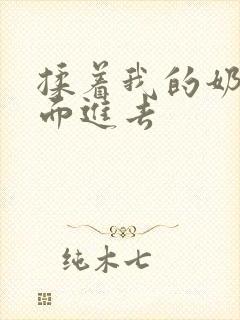 揉着我的奶
而進去
纯木七